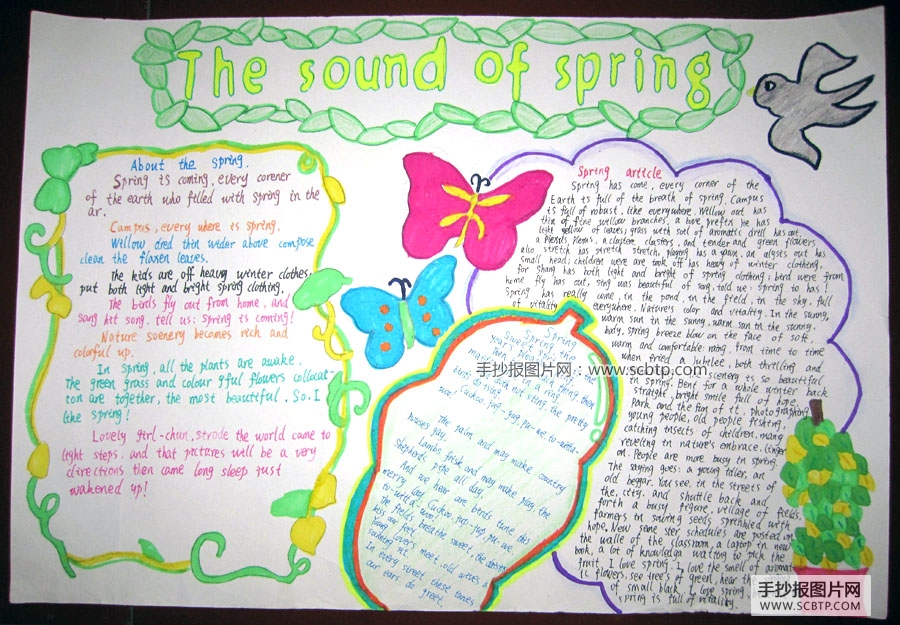 The sound of spring
About the spring.
Spring is coming, every corener
of the earth who filled with spring in the
ar.
Campus, every where is spring.
Willow dred that wider above compose
clean the flowen leaves.
The kids are off heavy winter clothes,
put both light and bright spring clothing.
The birds fly out from home, and
sang hit song. tell us: Spring is coming!
Nature suenery becomes rich and
colorful up.
In spring, all the plants are awake.
The green grass and colour gful flowers collocat-
ion are together, the most beautiful. So. I
like spring!
Lovely girl-chun, strode the world came to
light steps. and that pictures will be a very
directions then came long sleep just
wakened up!
Spring article
Spring has come, every corner of the
Earth is full of the breath of spring. Campus
is full of robust, like everywhere. Willow out has
thin of fine willow branches, a bove prefix he has
light yellow of leaves; grass with soil of aromatic drill has out,
a and tender and green flowers
also stretch has stretch stretch, playing has a yawn, an
small head; children were are took off has heavy of winter clothing,
for shang has both light and bright of spring clothing; bird were from
home fly has out, sing was beautiful of song, told us: spring to has!
Spring has really come, in the pond, in the field, in the sky, full
of vitality everywhere. Natures color and vitality. In the sunny,
warm sun in the sunny, warm sun in the sunny.
body, spring breeze blow on the face of soft,
warm and comfortable; ning, from time to time
when fried a jubilee, both thrilling and
scenery is so beautiful
in spring. Bent for a whole winter back
straight, bright smile full of hope.
Park and the fun of it, photographing
young people, old people fishing,
catching insects of children, many
reveling in nature's embrace, linger
on. People are more busy in spring.
The saying goes: a young idler, an
old beggar. You see, in the streets of
the, city. and shuttle back and
forth a busy figure, village of fields
farmers in sowing seeds sprinkled with
hope. New seme ster schedules are posted on
the walle of the classroom, a laptop in new
book, a lot of knowledge waiting to pick the
fruit, I love spring. I love the smell of aromat-
ic flowers, see tree's of green, hear the
of small back, I love spring,
spring is full of vitality.
Spring
Spring, the
year's plea
then
maids dance in a ring,
do sting, the pretty
birds do sing,
Cuckoo, jug-jug, pu-we, to-witta-
woo!
The palm and may make country
houses gay,
Lambs frisk and play, the
shepherds pipe all day,
And we hear are birds tune this
merry lay, Cuckoo, jug-jug, pu-we
to-witta-woo!
The fields breathe sweet, the daisies
kiss our feet,
Young lovers meet, old wives a
sunning sit,
In every street these tunes
our ears do greet,
手抄报图片网：www.scbtp.com
手抄报图片网
WWW.SCBTP.COM